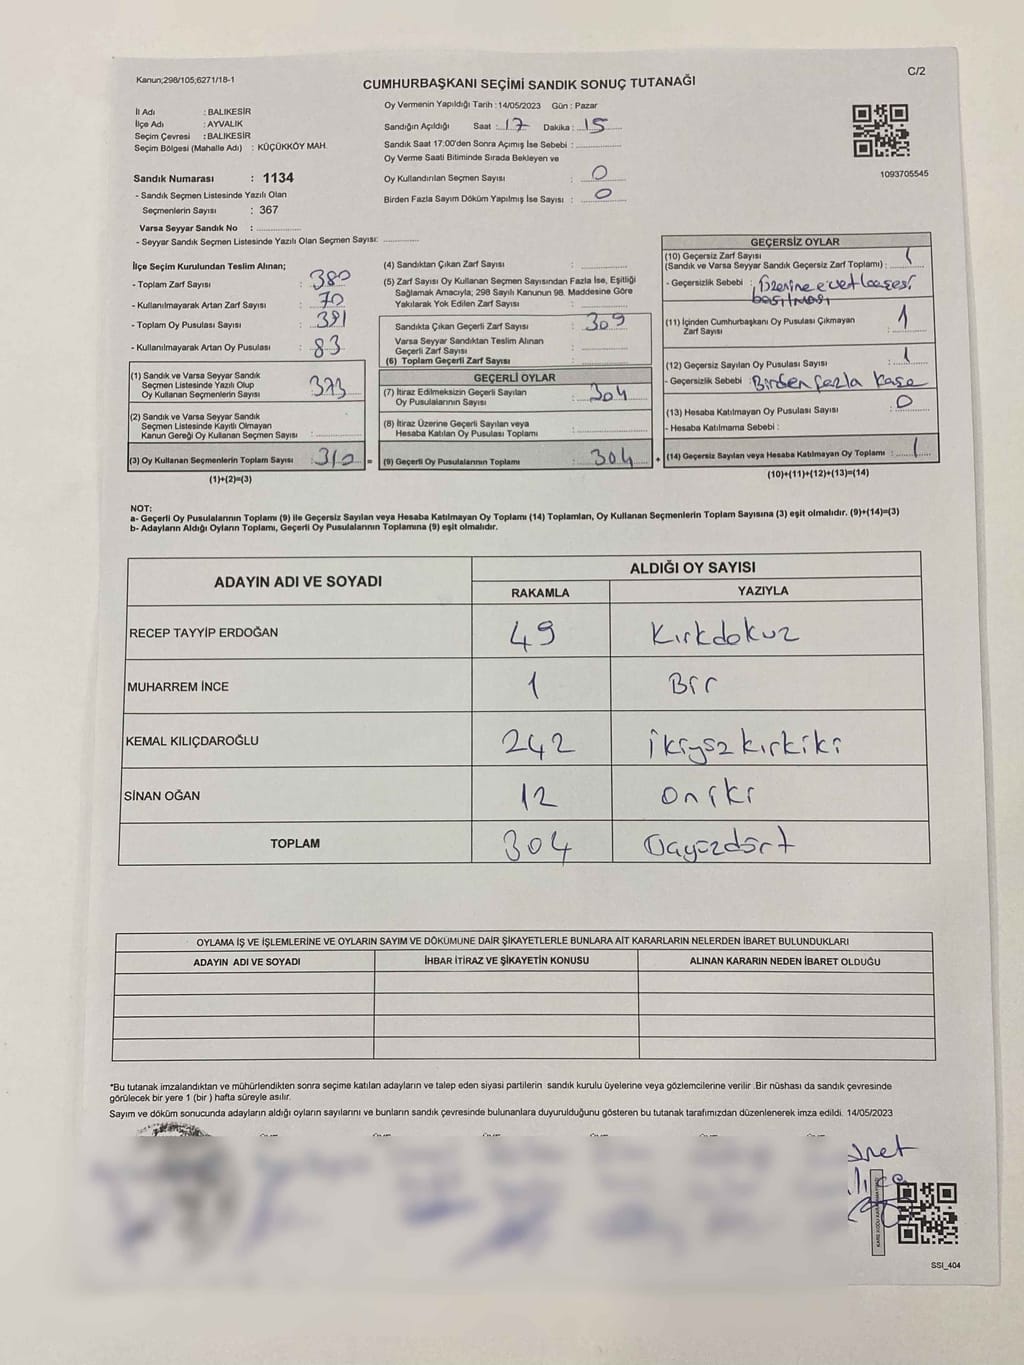 Kanun;298/105;6271/18-1
C/2
CUMHURBAŞKANI SEÇİMİ SANDIK SONUÇ TUTANAĞI
İl Adı : BALIKESİR
İlçe Adı : AYVALIK
Seçim Çevresi : BALIKESİR
Seçim Bölgesi (Mahalle Adı) : KÜÇÜKKÖY MAH.
Sandık Numarası : 1134
- Sandık Seçmen Listesinde Yazılı Olan
Seçmenlerin Sayısı : 367
Varsa Seyyar Sandık No : ..............
- Seyyar Sandık Seçmen Listesinde Yazılı Olan Seçmen Sayısı: ............
Oy Vermenin Yapıldığı Tarih : 14/05/2023 Gün : Pazar
Sandığın Açıldığı Saat : 17 Dakika : 15
Sandık Saat 17:00'den Sonra Açımış İse Sebebi : ..............
Oy Verme Saati Bitiminde Sırada Bekleyen ve
Oy Kullandırılan Seçmen Sayısı : 0
Birden Fazla Sayım Döküm Yapılmış İse Sayısı : 0
1093705545
İlçe Seçim Kurulundan Teslim Alınan;
- Toplam Zarf Sayısı : 380
- Kullanılmayarak Artan Zarf Sayısı : 70
- Toplam Oy Pusulası Sayısı : 391
- Kullanılmayarak Artan Oy Pusulası : 83
(1) Sandık ve Varsa Seyyar Sandık
Seçmen Listesinde Yazılı Olup
Oy Kullanan Seçmenlerin Sayısı : 373
(2) Sandık ve Varsa Seyyar Sandık
Seçmen Listesinde Kayıtlı Olmayan
Kanun Gereği Oy Kullanan Seçmen Sayısı : ............
(3) Oy Kullanan Seçmenlerin Toplam Sayısı : 310 =
(1)+(2)=(3)
(4) Sandıktan Çıkan Zarf Sayısı : ............
(5) Zarf Sayısı Oy Kullanan Seçmen Sayısından Fazla İse, Eşitliği
Sağlamak Amacıyla; 298 Sayılı Kanunun 98. Maddesine Göre
Yakılarak Yok Edilen Zarf Sayısı : ............
Sandıkta Çıkan Geçerli Zarf Sayısı : 309
Varsa Seyyar Sandıktan Teslim Alınan
Geçerli Zarf Sayısı : ............
(6) Toplam Geçerli Zarf Sayısı : ............
GEÇERLİ OYLAR
(7) İtiraz Edilmeksizin Geçerli Sayılan
Oy Pusulalarının Sayısı : 304
(8) İtiraz Üzerine Geçerli Sayılan veya
Hesaba Katılan Oy Pusulası Toplamı : ............
(9) Geçerli Oy Pusulalarının Toplamı : 304 +
GEÇERSİZ OYLAR
(10) Geçersiz Zarf Sayısı
(Sandık ve Varsa Seyyar Sandık Geçersiz Zarf Toplamı) : 1
- Geçersizlik Sebebi : Üzerine evet kaşesi
basılması
(11) İçinden Cumhurbaşkanı Oy Pusulası Çıkmayan
Zarf Sayısı : 1
(12) Geçersiz Sayılan Oy Pusulası Sayısı : 1
- Geçersizlik Sebebi : Birden fazla kaşe
(13) Hesaba Katılmayan Oy Pusulası Sayısı : 0
- Hesaba Katılmama Sebebi :
(14) Geçersiz Sayılan veya Hesaba Katılmayan Oy Toplamı : 1
(10)+(11)+(12)+(13)=(14)
NOT:
a- Geçerli Oy Pusulalarının Toplamı (9) ile Geçersiz Sayılan veya Hesaba Katılmayan Oy Toplamı (14) Toplamları, Oy Kullanan Seçmenlerin Toplam Sayısına (3) eşit olmalıdır. (9)+(14)=(3)
b- Adayların Aldığı Oyların Toplamı, Geçerli Oy Pusulalarının Toplamına (9) eşit olmalıdır.
ADAYIN ADI VE SOYADI ALDIĞI OY SAYISI
RAKAMLA YAZIYLA
RECEP TAYYİP ERDOĞAN 49 Kırkdokuz
MUHARREM İNCE 1 Bir
KEMAL KILIÇDAROĞLU 242 ikiyüzkırkiki
SİNAN OĞAN 12 oniki
TOPLAM 304 Üçyüzdört
OYLAMA İŞ VE İŞLEMLERİNE VE OYLARIN SAYIM VE DÖKÜMUNE DAİR ŞİKAYETLERLE BUNLARA AİT KARARLARIN NELERDEN İBARET BULUNDUKLARI
ADAYIN ADI VE SOYADI İHBAR İTİRAZ VE ŞİKAYETİN KONUSU ALINAN KARARIN NEDEN İBARET OLDUĞU
*Bu tutanak imzalandıktan ve mühürlendikten sonra seçime katılan adayların ve talep eden siyasi partilerin sandık kurulu üyelerine veya gözlemcilerine verilir .Bir nüshası da sandık çevresinde
görülecek bir yere 1 (bir ) hafta süreyle asılır.
Sayım ve döküm sonucunda adayların aldığı oyların sayılarını ve bunların sandık çevresinde bulunanlara duyurulduğunu gösteren bu tutanak tarafımızdan düzenlenerek imza edildi. 14/05/2023
SSI_404